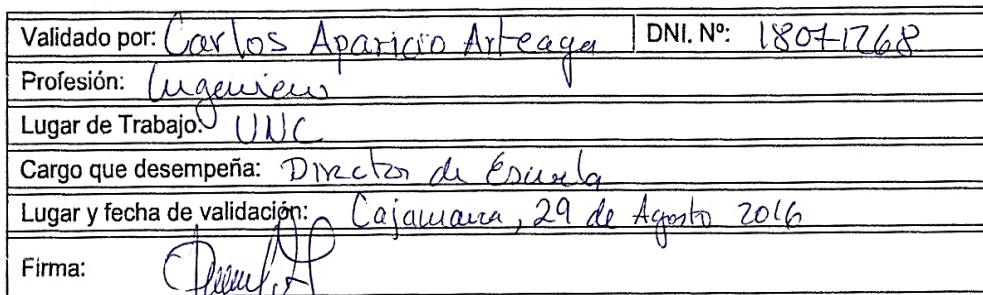 Validado por: Carlos Aparicio Arteaga DNI. Nº: 18071268
Profesión: Ingeniero
Lugar de Trabajo: UNC
Cargo que desempeña: Director de Escuela
Lugar y fecha de validación: Cajamarca, 29 de Agosto 2016
Firma: